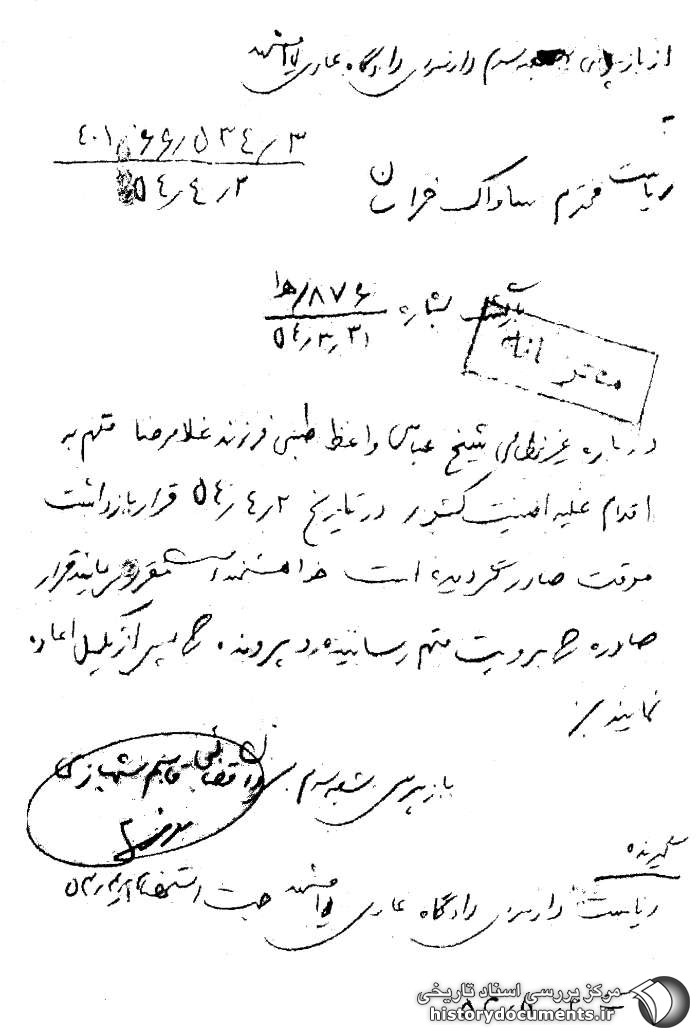 از بازپرسی شعبه سوم دادسرای دادگاه عادی لشکر مشهد
۴۰۱ر۶۶ر۵۳۴ر۳
۵۴ر۴ر۲
ریاست محترم ساواک خراسان
بازگشت بشماره
۸۷۶ر
۵۴ر۳ر۳۱
محرمانه
درباره غیرنظامی شیخ عباس واعظ طبسی فرزند غلامرضا متهم به
اقدام علیه امنیت کشور در تاریخ ۵۴ر۴ر۲ قرار بازداشت
موقت صادر گردیده است خواهشمند است مقرر فرمایند قرار
صادره برویت متهم رسانیده و پرونده پس از تکمیل اعاده
نمایند
بازپرس شعبه سوم قاسم شهبازی
گیرنده
ریاست دادسرای دادگاه عادی لشکر مشهد جهت استحضار
مرکز بررسی اسناد تاریخی
historydocuments.ir